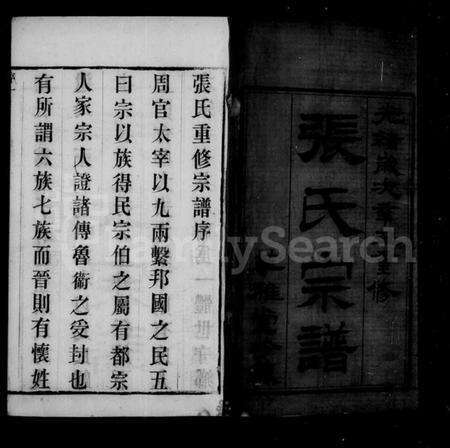 張氏宗譜
重修
張氏重修宗譜序
周官太宰以九兩繫邦國之民五
曰宗以族得民宗伯之屬有都宗
人家宗人證諸傳魯衞之受封也
有所謂六族七族而晉則有懷姓
FamilySearch